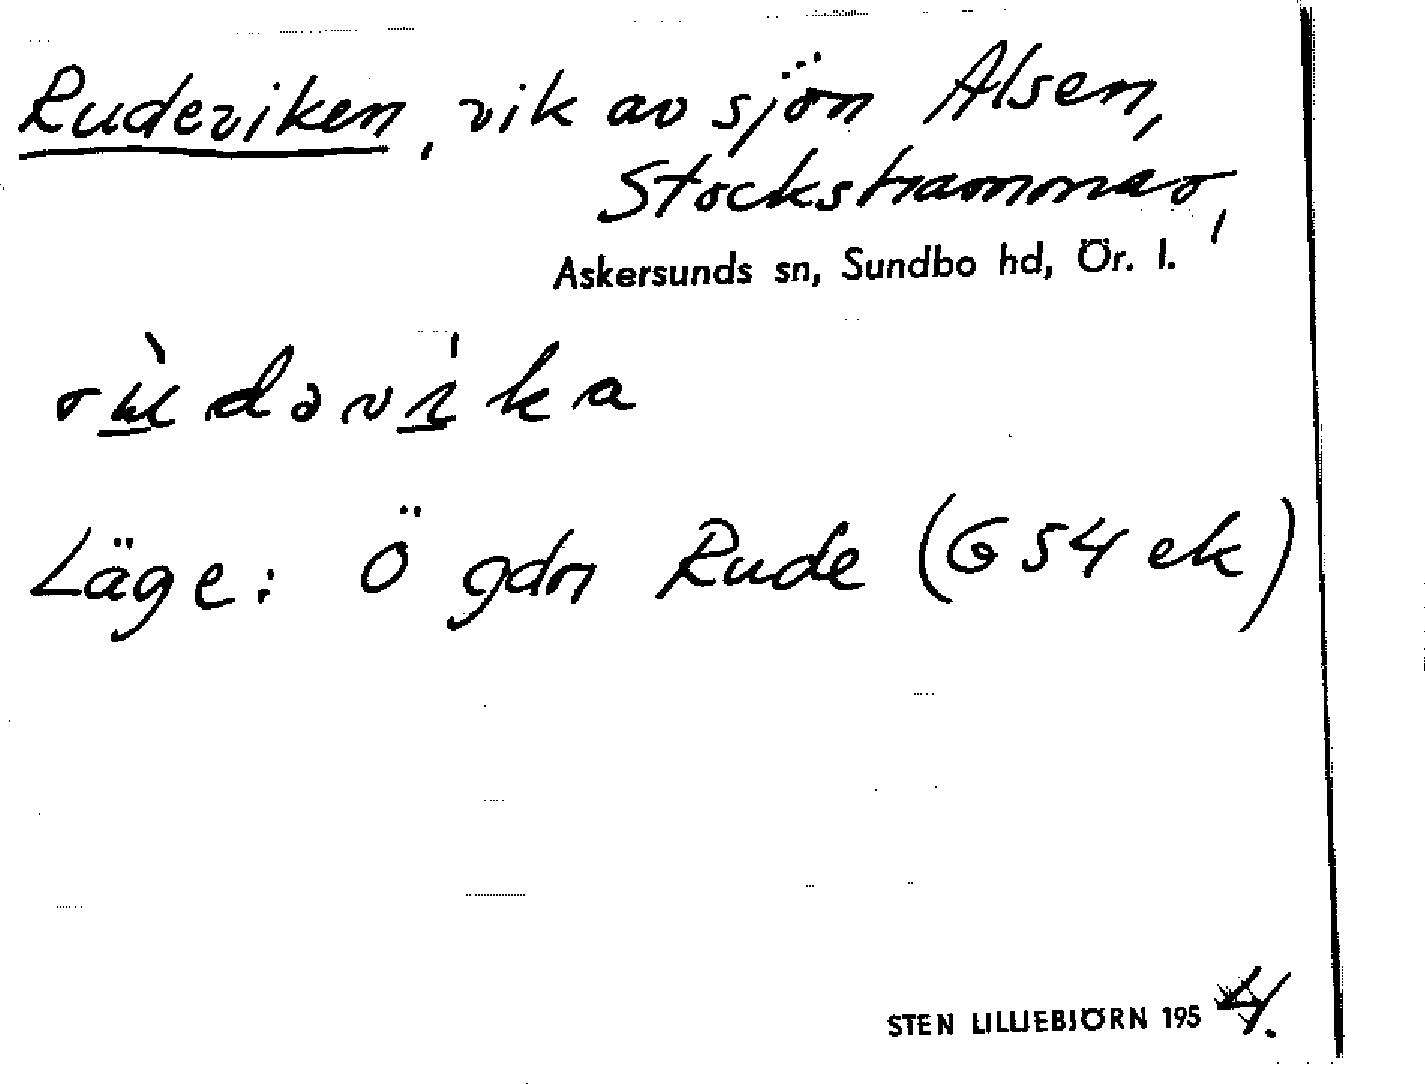 Rudeviken, vik av sjön Alsen,
Stockshammar,
Askersunds sn, Sundbo hd, Ör. l.
rùdəvíka
Läge: Ö gdn Rude (G 54 ek)
STEN LILLIEBJÖRN 1954.